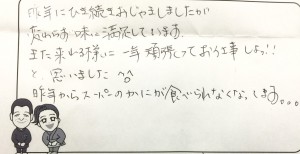 昨年にひき続きおじゃましましたが
変わらず味に満足しています。
また来れる様に一年頑張ってお仕事しよっ!!
と、思いました ^^
昨年からスーパーのかにが食べられなくなってます。。。